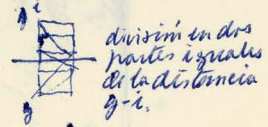 i
división en dos
partes iguales
de la distancia
g-i.
g